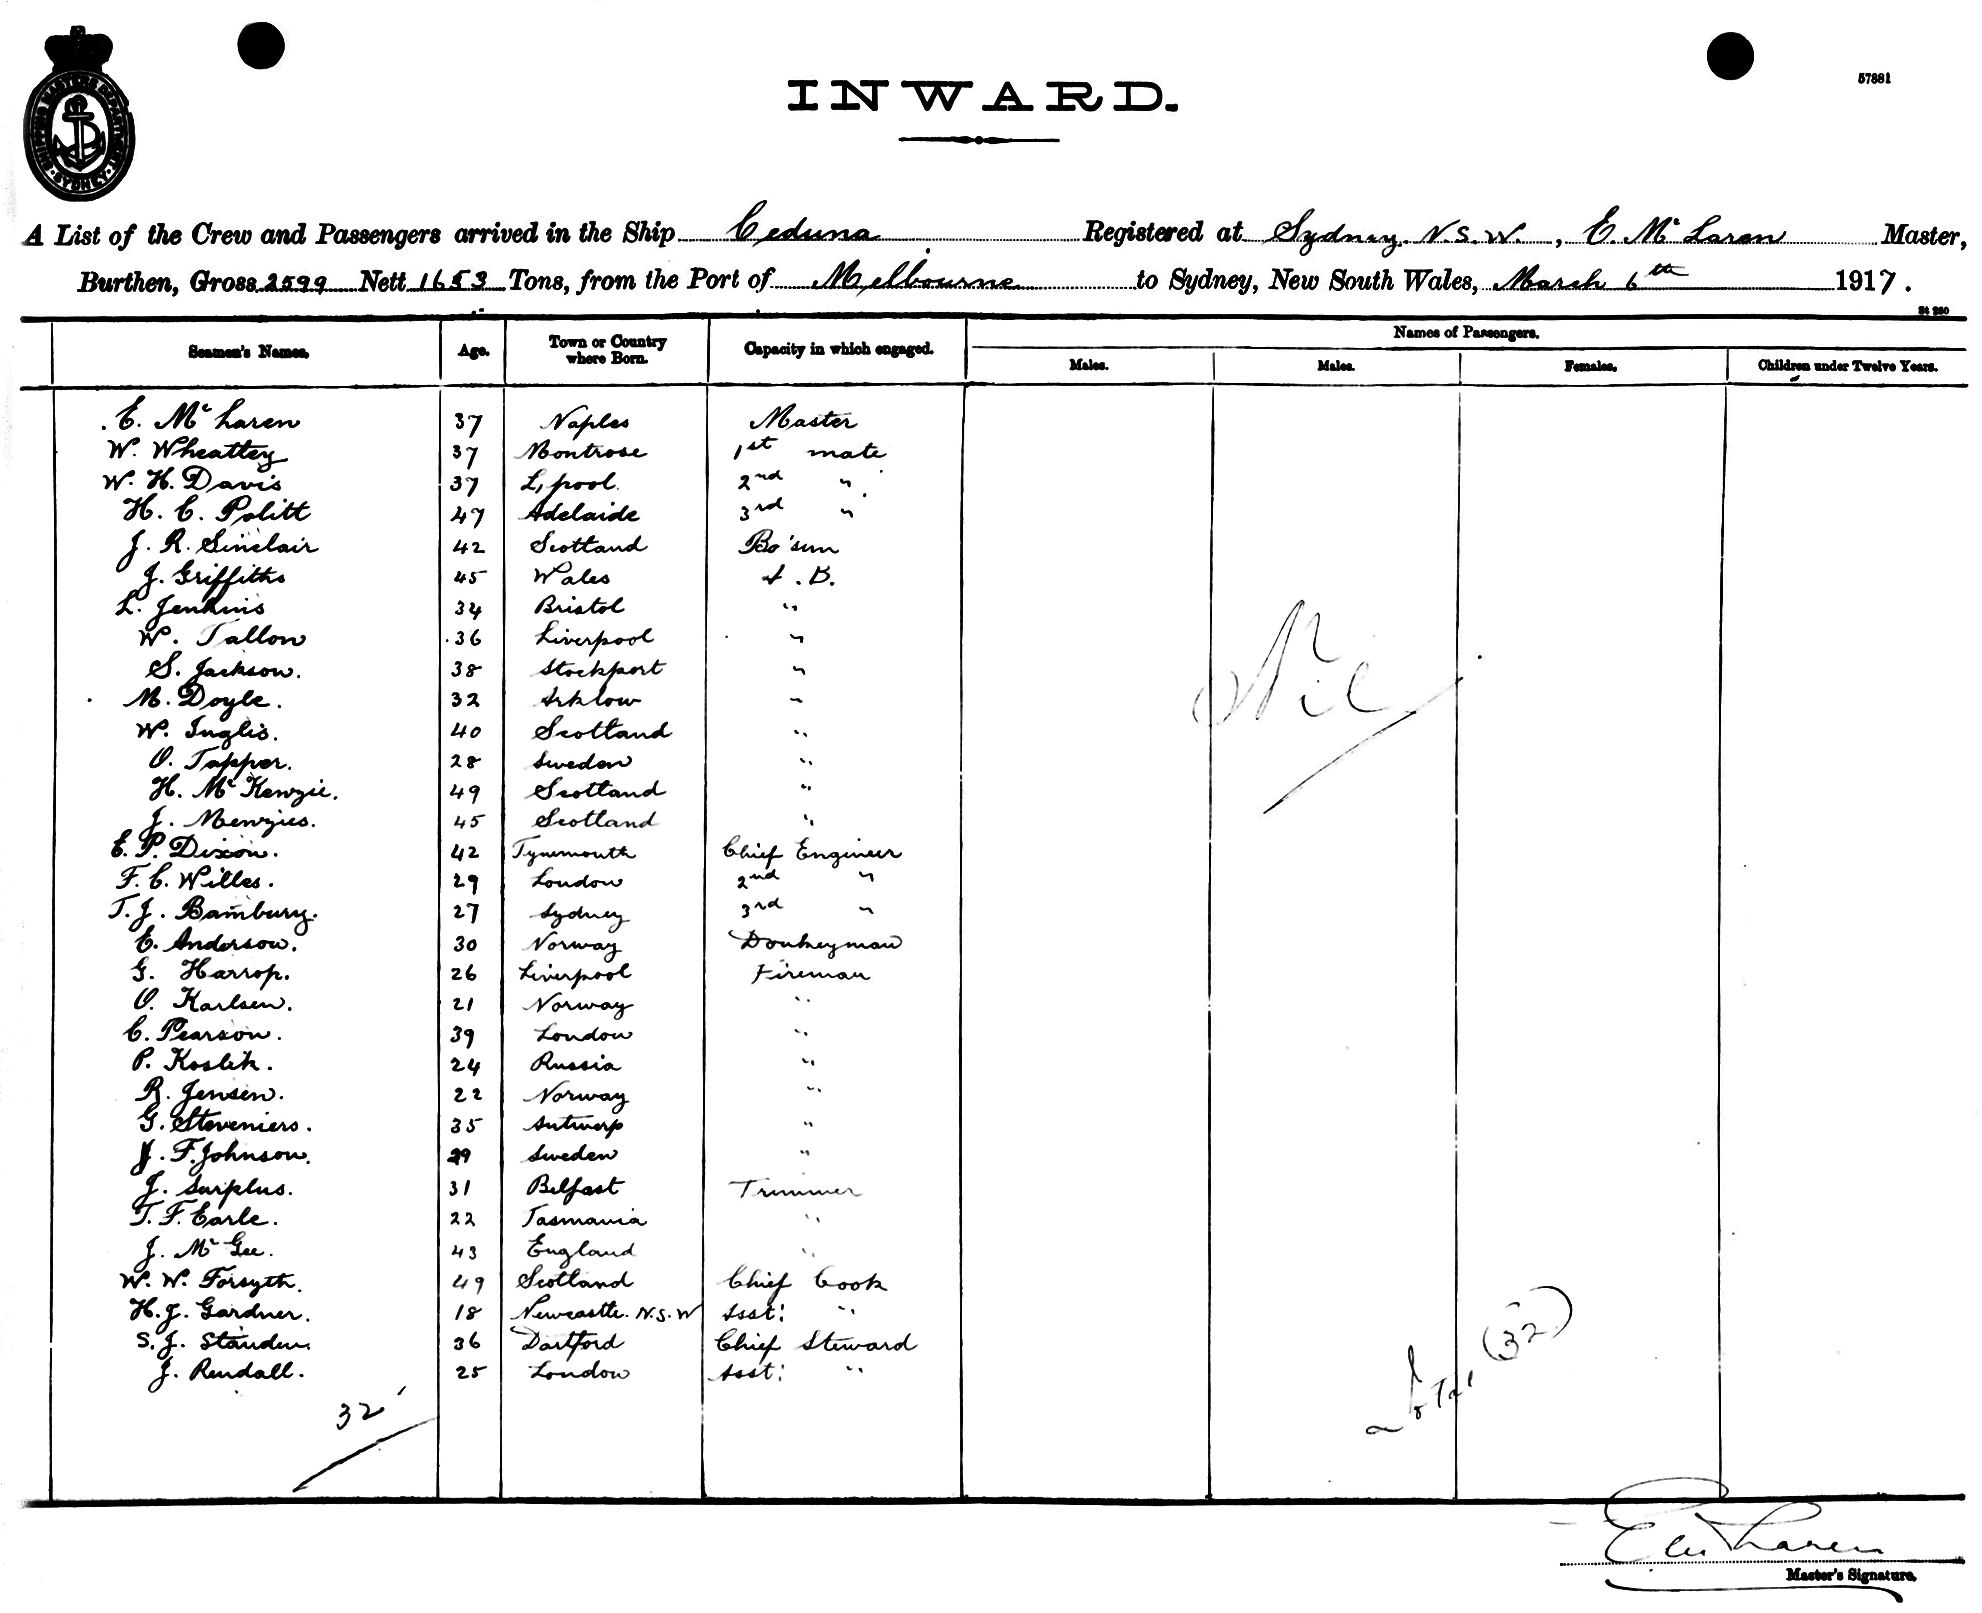 SHIPPING MASTERS DEPARTMENT
SYDNEY
57881
INWARD.
A List of the Crew and Passengers arrived in the Ship Ceduna Registered at Sydney. N.S.W., E. Mc Laren Master,
Burthen, Gross 2599 Nett 1653 Tons, from the Port of Melbourne to Sydney, New South Wales, March 6th 1917.
Seamen's Names. Age. Town or Country where Born. Capacity in which engaged. Names of Passengers.
Males. Males. Females. Children under Twelve Years.
E. Mc Laren 37 Naples Master
W. Wheatley 37 Montrose 1st mate
W. H. Davis 37 L,pool. 2nd "
H. C. Politt 47 Adelaide 3rd "
J. R. Sinclair 42 Scotland Bo'sun
J. Griffiths 45 Wales A.B.
L. Jenkins 34 Bristol "
W. Tallon 36 Liverpool "
S. Jackson. 38 Stockport "
M. Doyle. 32 Arklow "
W. Inglis. 40 Scotland "
O. Tapper. 28 Sweden "
H. Mc Kenzie. 49 Scotland "
J. Menzies. 45 Scotland "
E. P. Dixon. 42 Tynemouth Chief Engineer
F. C. Willes. 29 London 2nd "
T. J. Bambury. 27 Sydney 3rd "
E. Anderson. 30 Norway Donkeyman
G. Harrop. 26 Liverpool Fireman
O. Karlsen. 21 Norway "
C. Pearson. 39 London "
P. Koslik. 24 Russia "
R. Jensen. 22 Norway "
G. Steveniers. 35 Antwerp "
J. F. Johnson. 29 Sweden "
J. Surplus. 31 Belfast Trimmer
T. F. Earle. 22 Tasmania "
J. Mc Gee. 43 England "
W. W. Forsyth. 49 Scotland Chief Cook
H. J. Gardner. 18 Newcastle. N.S.W Asst: "
S. J. Standen. 36 Dartford Chief Steward
J. Rendall. 25 London Asst: "
Nil
32
Total (32)
E Mc Laren
Master's Signature.